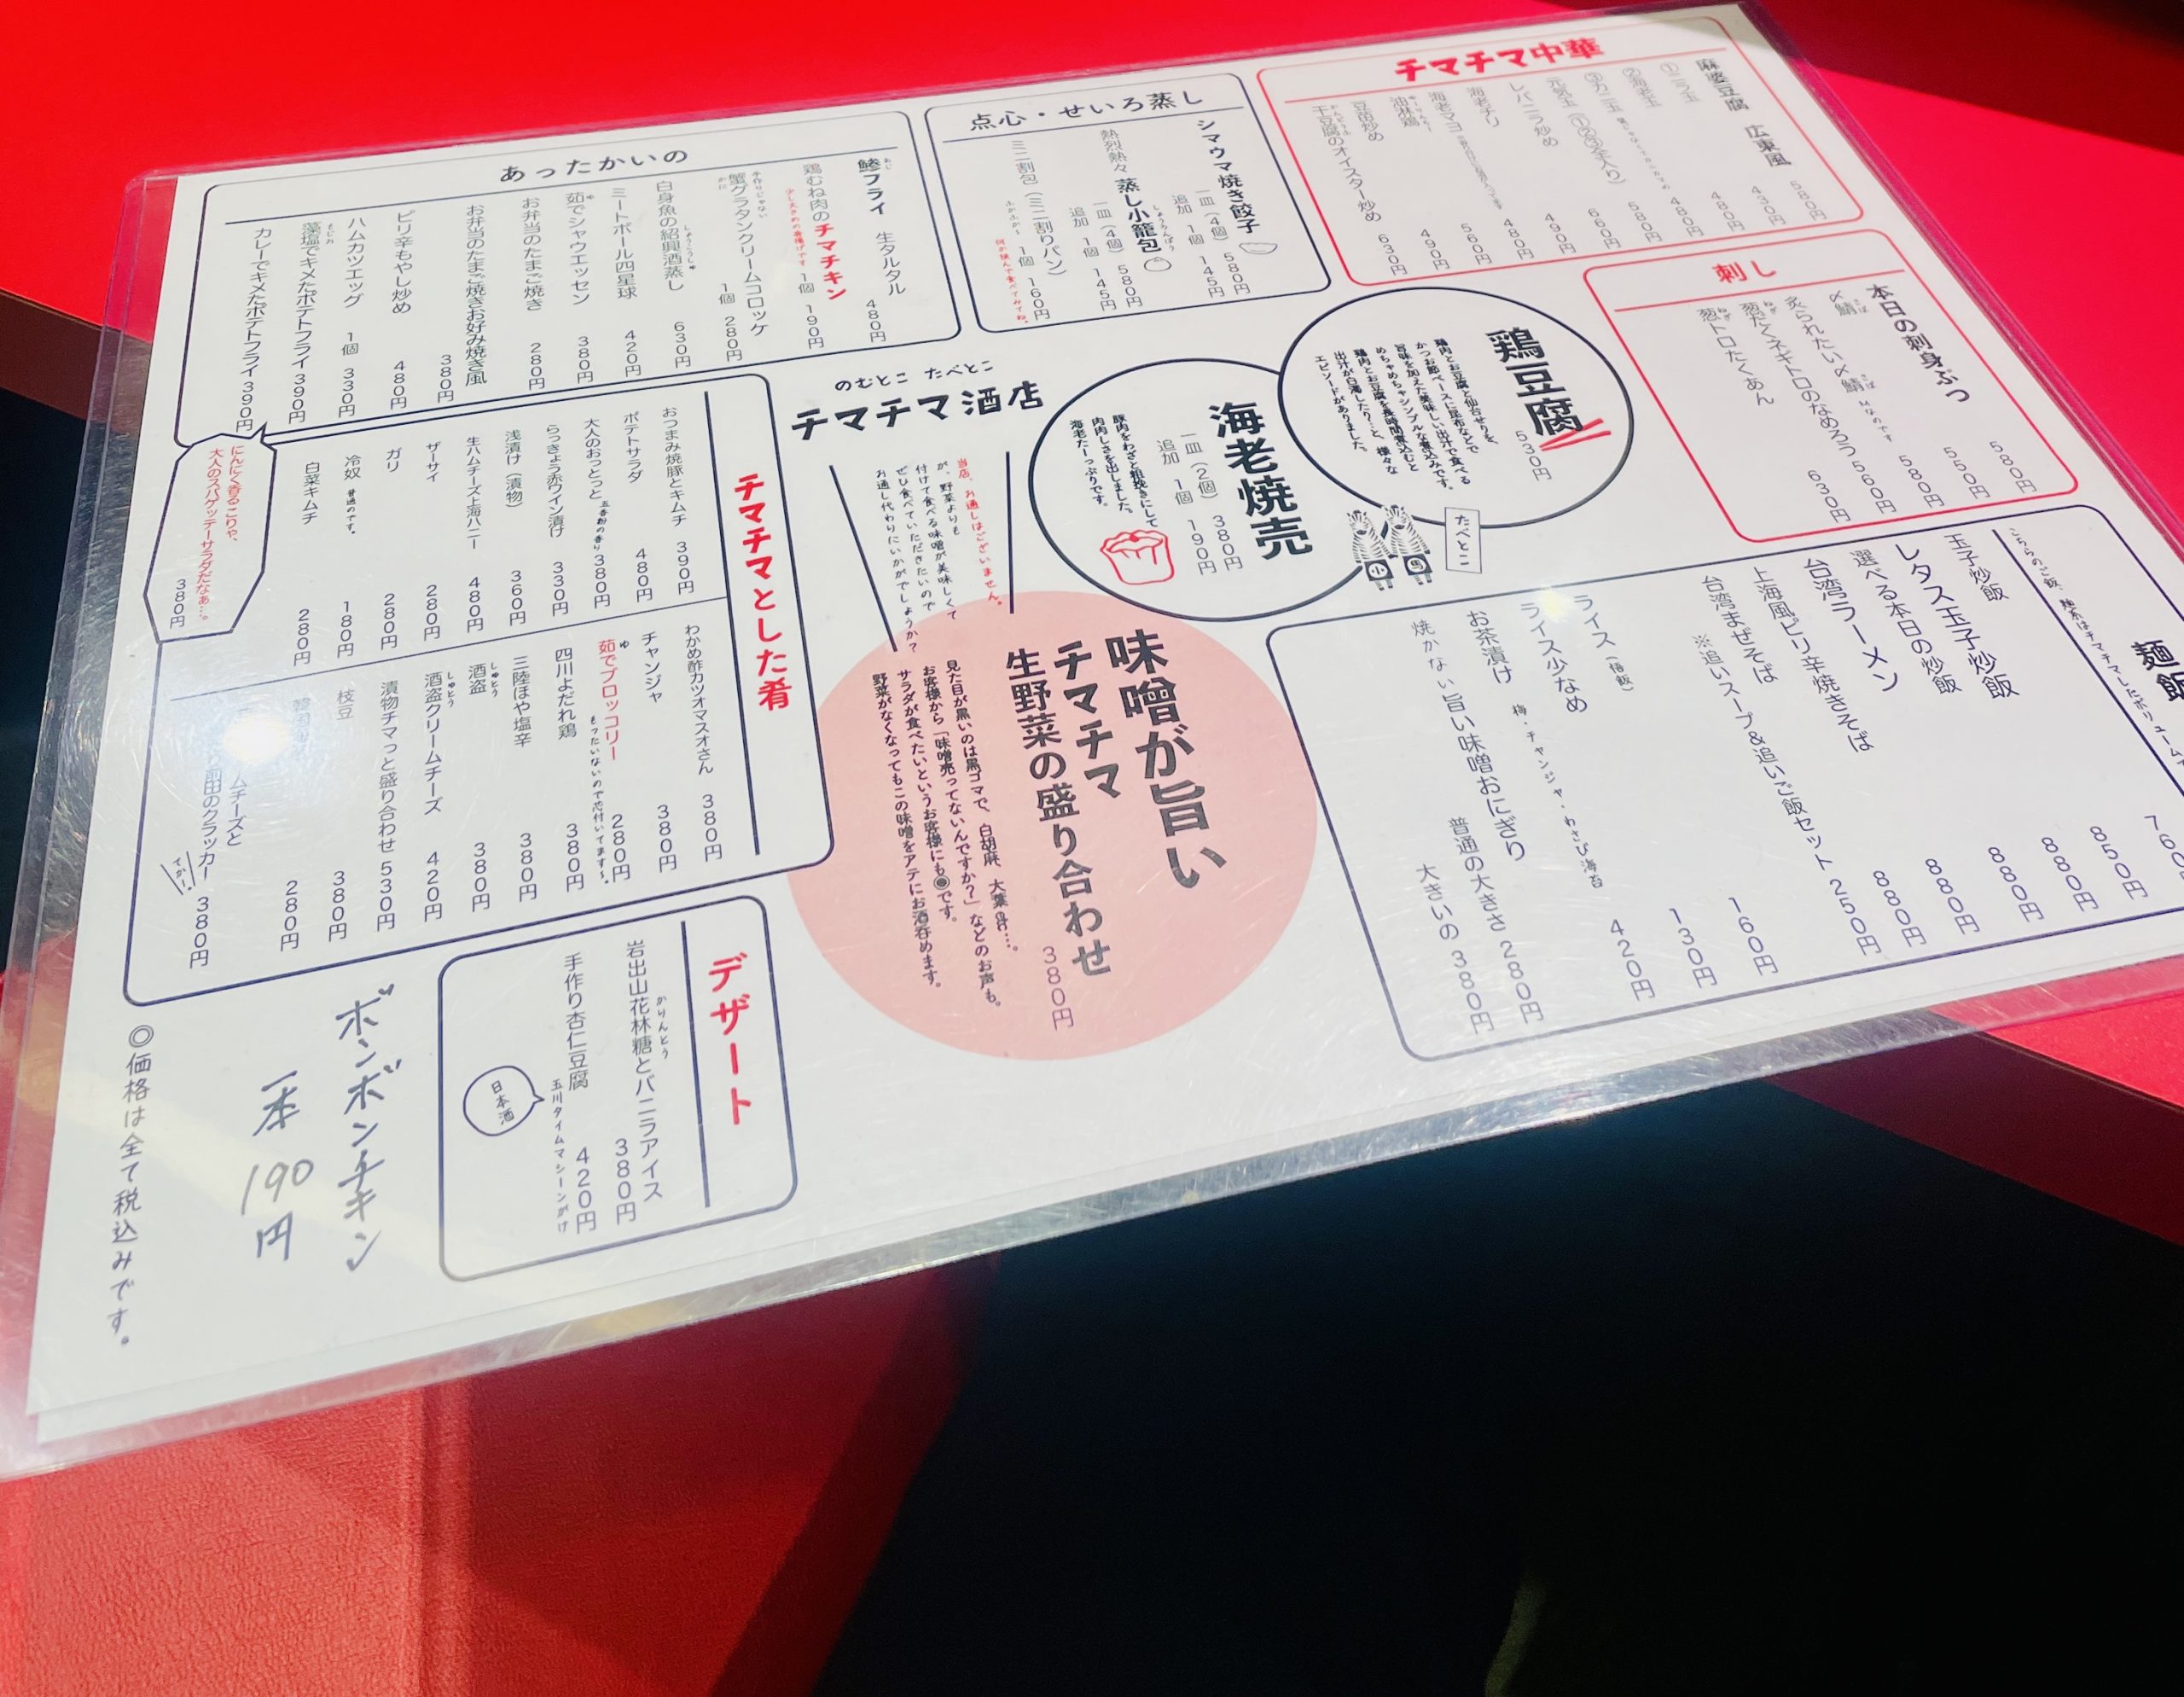 チマチマ中華
麻婆豆腐 広東風 580円
①ニラ玉 430円
②海老玉 480円
③カニ玉 480円
元気玉(①②③全入り) 580円
レバニラ炒め 660円
海老チリ 490円
海老マヨ 480円
油淋鶏 560円
豆苗炒め 490円
干豆腐のオイスター炒め 630円
刺し
本日の刺身ぶつ 580円
〆鯖 550円
炙られたい〆鯖 Mなのです 580円
葱だくネギトロのなめろう 560円
葱トロたくあん 630円
点心・せいろ蒸し
シマウマ焼き餃子
一皿(4個) 580円
追加 1個 145円
熱烈熱々 蒸し小籠包
一皿(4個) 580円
追加 1個 145円
ミニ割包(ミニ割りパン)
ふかふか〜 1個 160円
何か挟んで食べてみてね。
あったかいの
鯵フライ 生タルタル 480円
鶏むね肉のチマチキン
少し大きめの唐揚げです 1個 190円
手作りじゃない
蟹グラタンクリームコロッケ
1個 280円
白身魚の紹興酒蒸し 630円
ミートボール四星球 420円
茹でシャウエッセン 380円
お弁当のたまご焼き 280円
お弁当のたまご焼きお好み焼き風 380円
ピリ辛もやし炒め 480円
ハムカツエッグ 1個 330円
藻塩でキメたポテトフライ 390円
カレーでキメたポテトフライ 390円
のむとこ たべとこ
チマチマ酒店
当店、お通しはございません。
が、野菜よりも
付けて食べる味噌が美味しくて
ぜひ食べていただきたいので
お通し代わりにいかがでしょうか?
鶏豆腐
530円
鶏肉とお豆腐と仙台せりを、
かつお節ベースに昆布などで
旨味を加えた美味しい出汁で食べる
めちゃめちゃシンプルな煮込みです。
鶏肉とお豆腐を長時間煮込むと
出汁が白濁したり…と、様々な
エピソードがありました。
海老焼売
一皿(2個) 380円
追加 1個 190円
豚肉をわざと粗挽きにして
肉肉しさを出しました。
海老たーっぷりです。
たべとこ
小
馬
味噌が旨い
チマチマ
生野菜の盛り合わせ
380円
見た目が黒いのは黒ゴマで、白胡麻、大葉 a.e.t…。
お客様から「味噌売ってないんですか?」などのお声も。
サラダが食べたいというお客様にも◉です。
野菜がなくなってもこの味噌をアテにお酒呑めます。
麺飯
こちらのご飯、麺系はチマチマしたボリュームで
玉子炒飯
レタス玉子炒飯 850円
選べる本日の炒飯 880円
台湾ラーメン 880円
上海風ピリ辛焼きそば 880円
台湾まぜそば 880円
※追いスープ&追いご飯セット 250円
ライス(梅飯) 160円
ライス少なめ 130円
お茶漬け 梅・チャンジャ・わさび海苔 420円
焼かない旨い味噌おにぎり
普通の大きさ 280円
大きいの 380円
チマチマとした肴
おつまみ焼豚とキムチ 390円
ポテトサラダ 480円
大人のおっとっと 五香粉の香り 380円
らっきょう赤ワイン漬け 330円
浅漬け(漬物) 360円
生ハムチーズ上海ハニー 480円
ザーサイ 280円
ガリ 280円
冷奴 普通のです。 180円
白菜キムチ 280円
にんにく香るこりゃ、
大人のスパゲッテーサラダだなぁ…。
380円
わかめ酢カツオマスオさん 380円
チャンジャ 380円
茹でブロッコリー 280円
もったいないので芯付いてます〜。
四川よだれ鶏 380円
三陸ほや塩辛 380円
酒盗 380円
酒盗クリームチーズ 420円
漬物チマっと盛り合わせ 530円
枝豆 380円
韓国海苔 280円
ムチーズと
前田のクラッカー 380円
でか!
デザート
岩出山花林糖とバニラアイス 380円
手作り杏仁豆腐 420円
玉川タイムマシーンがけ
日本酒
ボンボンチキン
一本 190円
◎価格は全て税込みです。